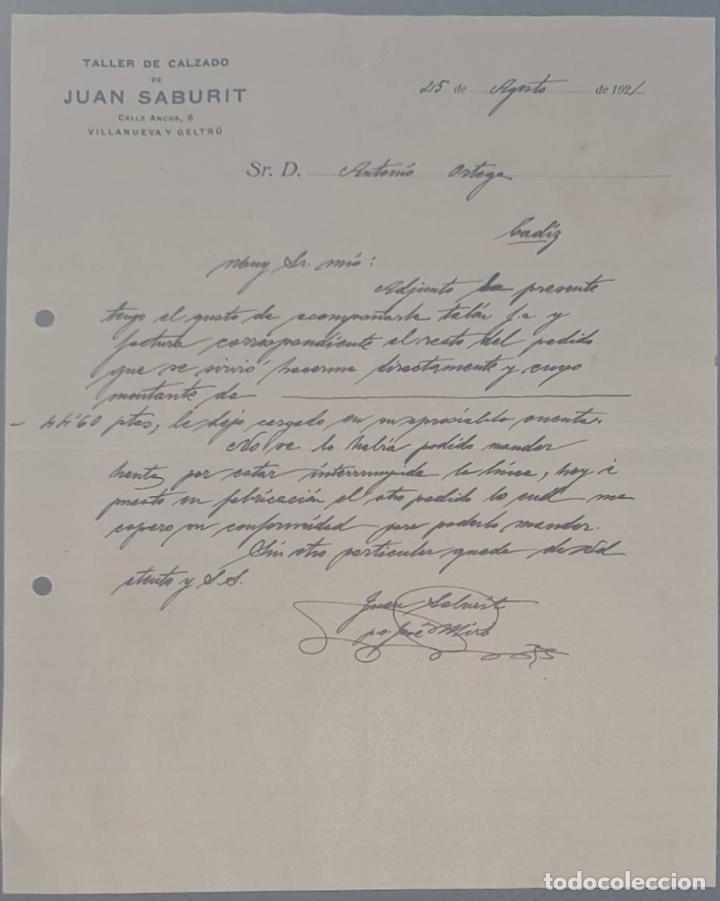 TALLER DE CALZADO
DE
JUAN SABURIT
CALLE ANCHA, 6
VILLANUEVA Y GELTRÚ
25 de Agosto de 1921
Sr. D. Antonio Ortega
Cadiz
Muy Sr. mio:
Adjunto la presente
tengo el gusto de acompañarle talón f.c. y
factura correspondiente al resto del pedido
que se sirvió hacerme directamente y cuyo
montante de
44'60 ptas, le dejo cargado en su apreciable cuenta.
No se lo había podido mandar
por estar interrumpida la línea, hoy
puesto en fabricación el otro pedido lo cual me
espero en conformidad para poderlo mandar.
Sin otro particular queda de Vd
atento y S.S.
Juan Saburit
po José Miró
todocoleccion.net